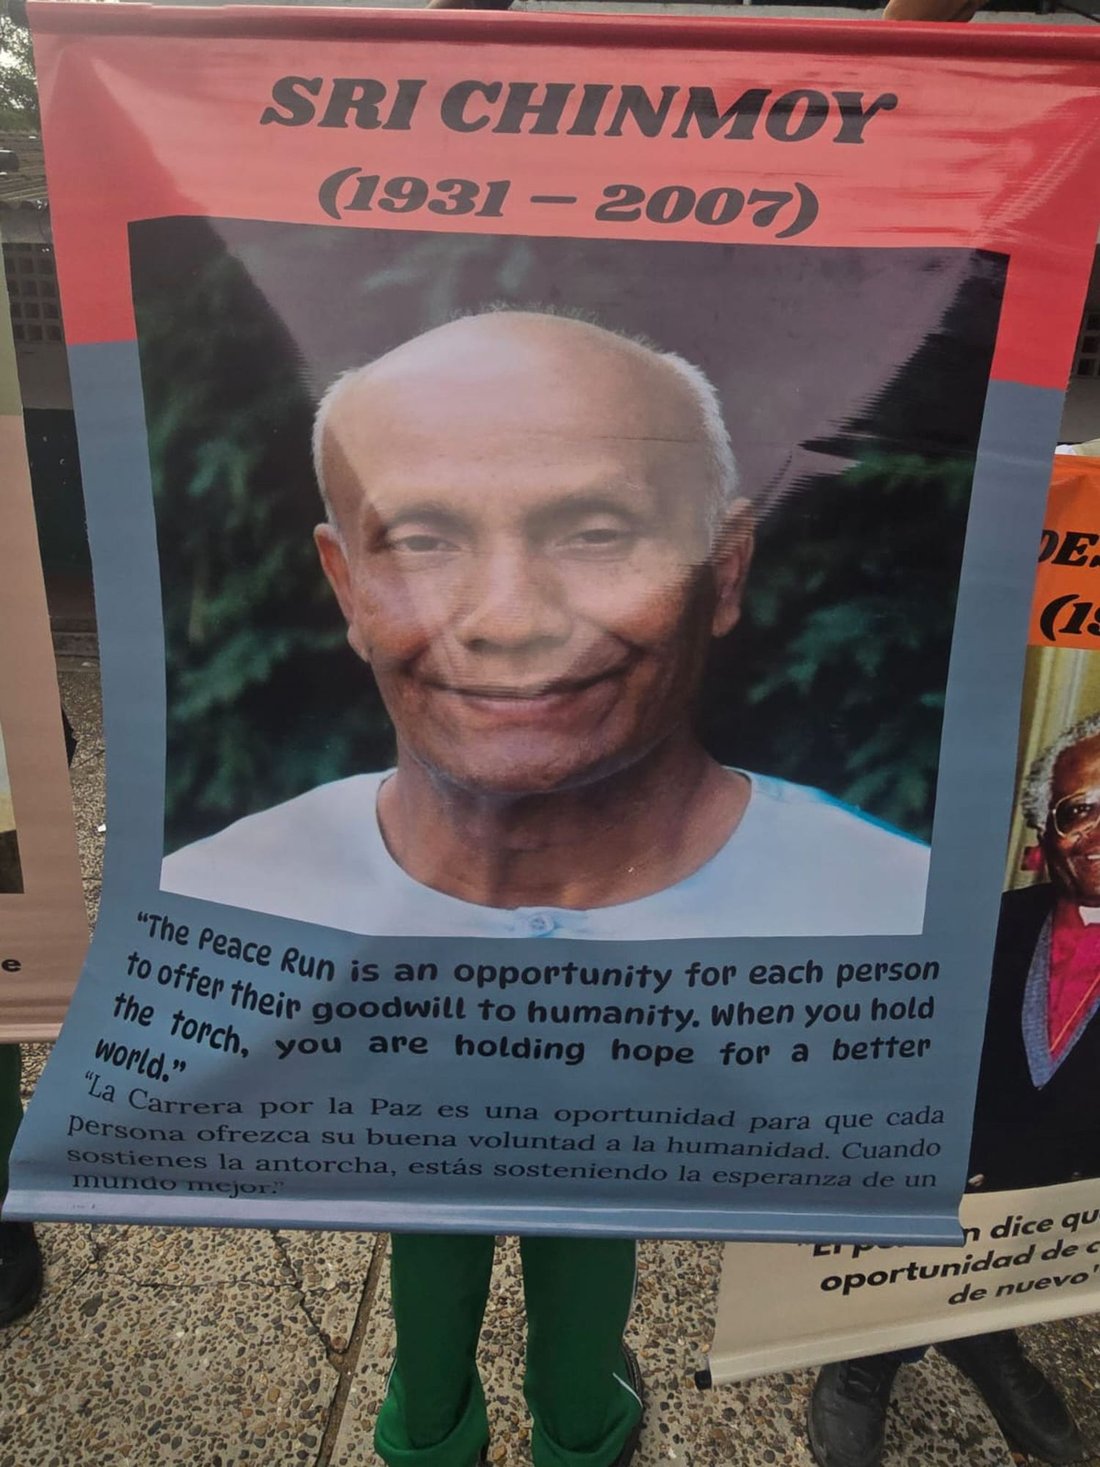 SRI CHINMOY
(1931 – 2007)
“The Peace Run is an opportunity for each person
to offer their goodwill to humanity. When you hold
the torch, you are holding hope for a better
world.”
“La Carrera por la Paz es una oportunidad para que cada
persona ofrezca su buena voluntad a la humanidad. Cuando
sostienes la antorcha, estás sosteniendo la esperanza de un
mundo mejor.”
e
DES
(19
n dice qu
oportunidad de c
de nuevo"